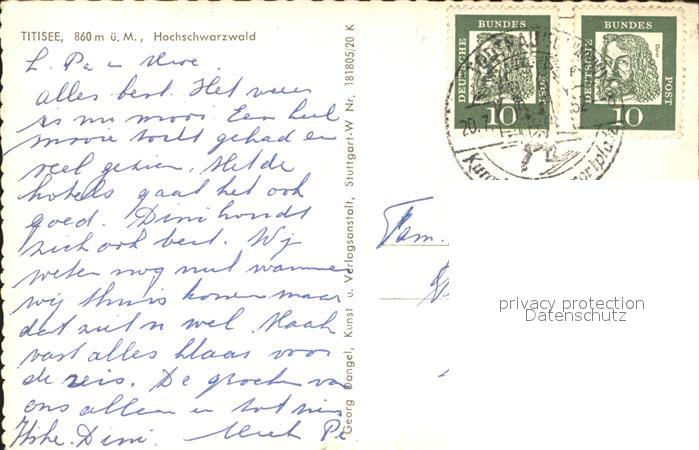 TITISEE, 860 m ü. M., Hochschwarzwald
L. Pa en
alles best. Het weer
is nu mooi. Een heel
mooie tocht gehad en
veel gezien. Met de
hotels gaat het ook
goed. Dini houdt
zich ook best. Wij
weten nog niet wanneer
wij thuis komen maar
dat ziet u wel. Maak
vast alles klaar voor
de reis. De groeten van
ons allen en tot ziens
Dini.
Georg Dangel, Kunst u. Verlagsanstalt, Stuttgart-W Nr. 181805/20 K
DEUTSCHE BUNDES POST
10
DEUTSCHE BUNDES POST
Dürer
10
20.7
Fam.
privacy protection
Datenschutz